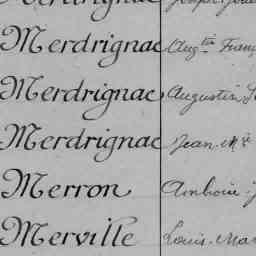 Merdrignac
Merdrignac Augtin Franç
Merdrignac Augustin
Merdrignac Jean Mie
Merron Ambroise
Merville Louis Mar